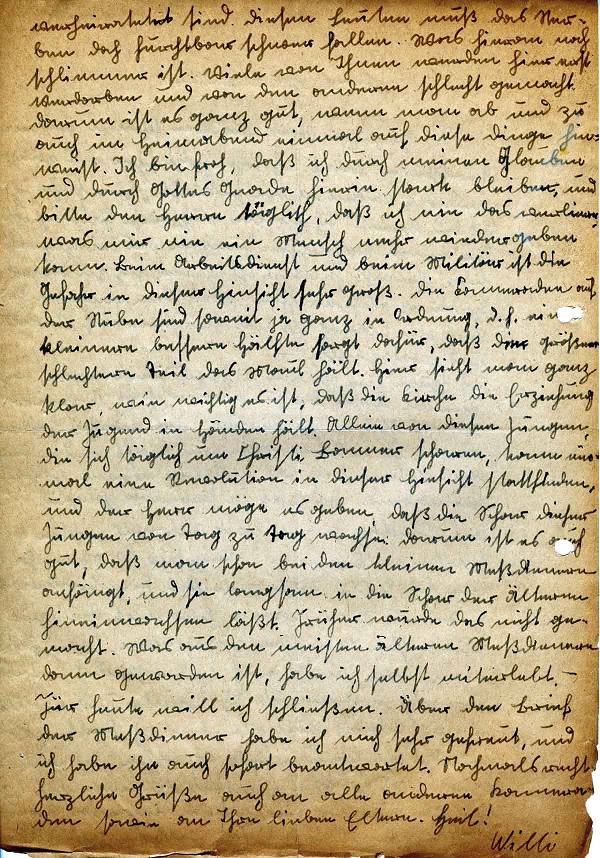 verheiratetet sind. Diesen Leuten muß das Ster-
ben doch furchtbar schwer fallen. Was hieran noch
schlimmer ist. Viele von Ihnen werden hier erst
verdorben und von den anderen schlecht gemacht.
Darum ist es ganz gut, wenn man ab und zu
auch im Heimabend einmal auf diese Dinge hin-
weist. Ich bin froh, daß ich durch meinen Glauben
und durch Gottes Gnade hierin stark bleibe, und
bitte den Herrn täglich, daß ich nie das verliere,
was mir nie ein Mensch mehr wiedergeben
kann. Beim Arbeitsdienst und beim Militär ist die
Gefahr in dieser Hinsicht sehr groß. Die Kameraden auf
der Stube sind soweit ja ganz in Ordnung, d.h. eine
kleinere bessere Hälfte sorgt dafür, daß der größere
schlechtere Teil das Maul hält. Hier sieht man ganz
klar, wie wichtig es ist, daß die Kirche die Erziehung
der Jugend in Händen hält. Allein von diesen Jungen,
die sich täglich um Christi Banner scharen, kann ein-
mal eine Revolution in dieser Hinsicht stattfinden,
und der Herr möge es geben, daß die Schar dieser
Jungen von Tag zu Tag wachse. Darum ist es auch
gut, daß man schon bei den kleinen Meßdienern
anfängt, und sie langsam in die Schar der Älteren
hineinwachsen läßt. Früher wurde das nicht ge-
macht. Was aus den meisten älteren Meßdienern
dann geworden ist, habe ich selbst miterlebt. –
Für heute will ich schließen. Über den Brief
der Meßdiener habe ich mich sehr gefreut, und
ich habe ihn auch sofort beantwortet. Nochmals recht
herzliche Grüße auch an alle anderen Kamera-
den sowie an Ihre lieben Eltern. Heil!
Willi